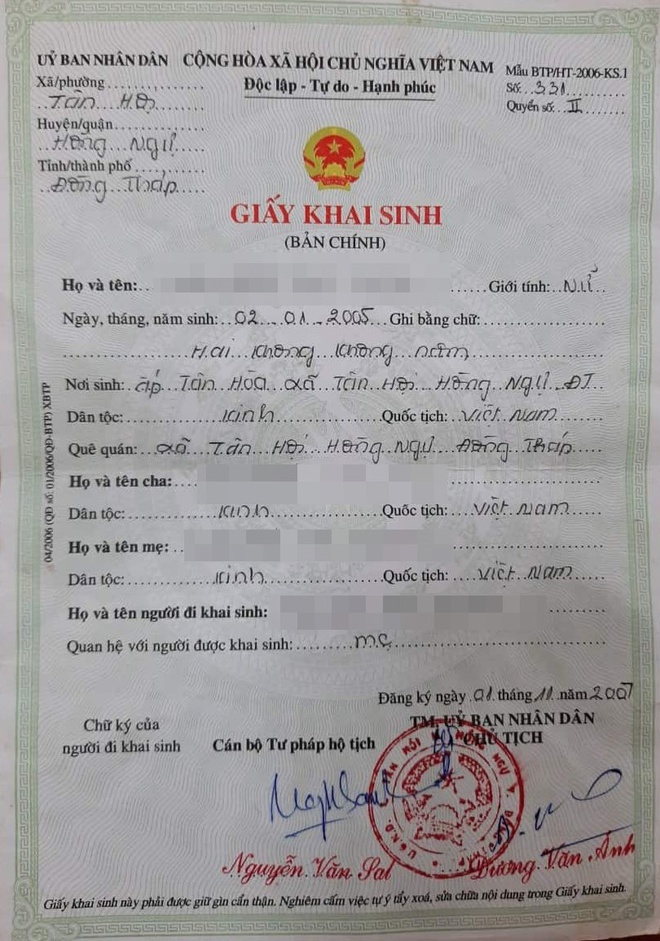 UỶ BAN NHÂN DÂN CỘNG HÒA XÃ HỘI CHỦ NGHĨA VIỆT NAM Mẫu BTP/HT-2006-KS.1
Xã/phường Độc lập - Tự do - Hạnh phúc Số: 331
Tân Hội Quyển số: II
Huyện/quận
Hồng Ngự
Tỉnh/thành phố
Đồng Tháp
GIẤY KHAI SINH
(BẢN CHÍNH)
Họ và tên: Giới tính: Nữ
Ngày, tháng, năm sinh: 02 - 01 - 2005 Ghi bằng chữ:
Hai không không năm
Nơi sinh: ấp Tân Hòa xã Tân Hội Hồng Ngự ĐT
Dân tộc: kinh Quốc tịch: Việt Nam
Quê quán: xã Tân Hội Hồng Ngự Đồng Tháp
Họ và tên cha:
Dân tộc: kinh Quốc tịch: Việt Nam
Họ và tên mẹ:
Dân tộc: kinh Quốc tịch: Việt Nam
Họ và tên người đi khai sinh:
Quan hệ với người được khai sinh: mẹ
Đăng ký ngày 01 tháng 11 năm 2007
Chữ ký của người đi khai sinh
Cán bộ Tư pháp hộ tịch
TM. UỶ BAN NHÂN DÂN
CHỦ TỊCH
Nguyễn Văn Sal Dương Văn Ảnh
Giấy khai sinh này phải được giữ gìn cẩn thận. Nghiêm cấm việc tự ý tẩy xoá, sửa chữa nội dung trong Giấy khai sinh.
04/2006 (QĐ số: 01/2006/QĐ-BTP) XBTP